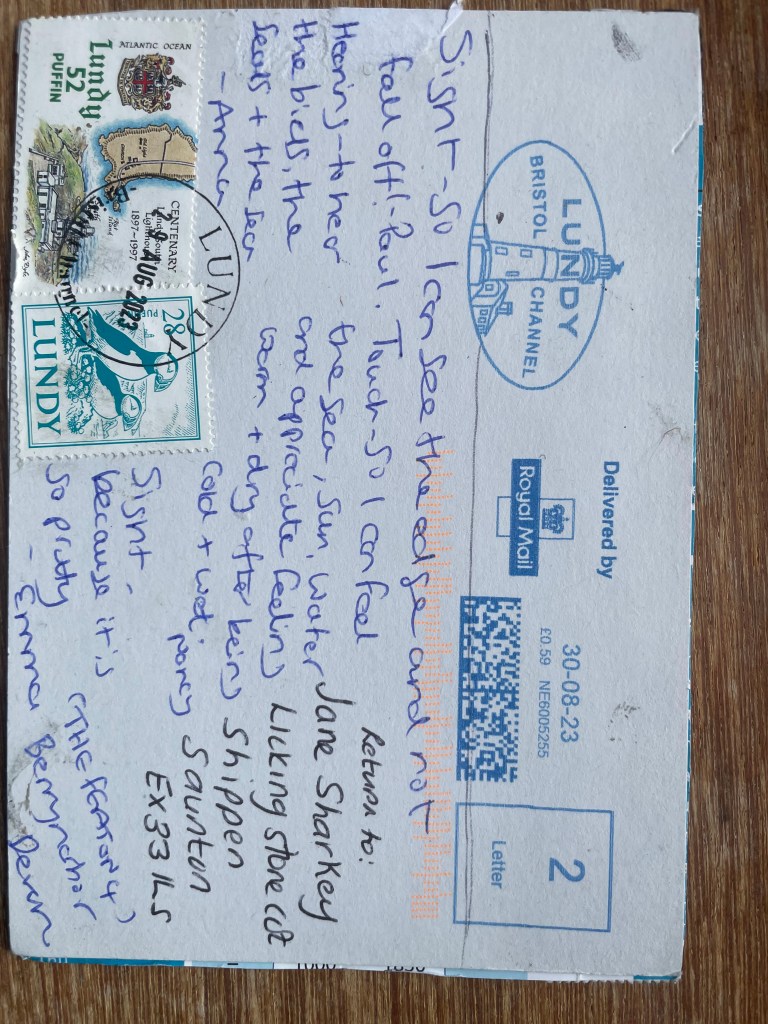 Delivered by
Royal Mail
30-08-23
£0.59 NE6005255
2
Letter
LUNDY
BRISTOL CHANNEL
Sisnt - So I can see the edge and not
fall off! - Paul.
Touch - So I can feel
the sea, sun, water
and appriciate feeling
warm + dry after being
cold + wet.
Hearing - to hear
the birds, the
seals + the sea
- Anna
Return to:
Jane Sharkey
Licking stone cot
Shippen
Saunton
EX33 1LS
Sisnt -
because it is
so pretty
- Emma Berrynarbor
Devon
ATLANTIC OCEAN
Lundy
52
PUFFIN
CENTENARY
Lundy South
Lighthouse
1897-1997
LUNDY
29 AUG 2023
28
LUNDY